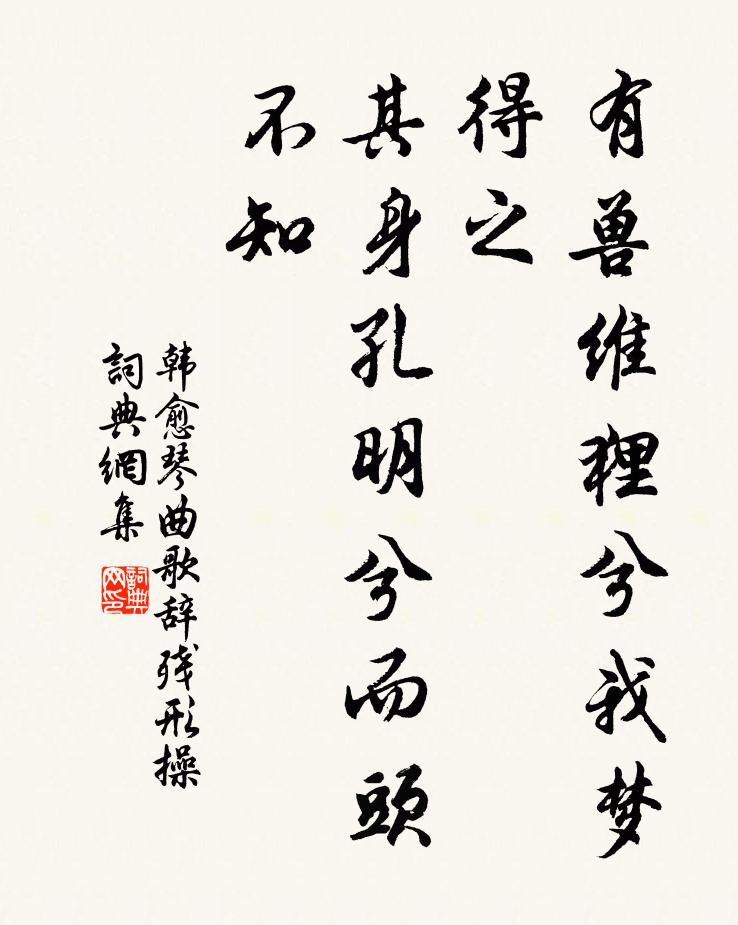 有兽维狸兮我梦
得之
其身孔明兮而頭
不知
韩愈琴曲歌辞残形操
詞典網集
詞典
网印